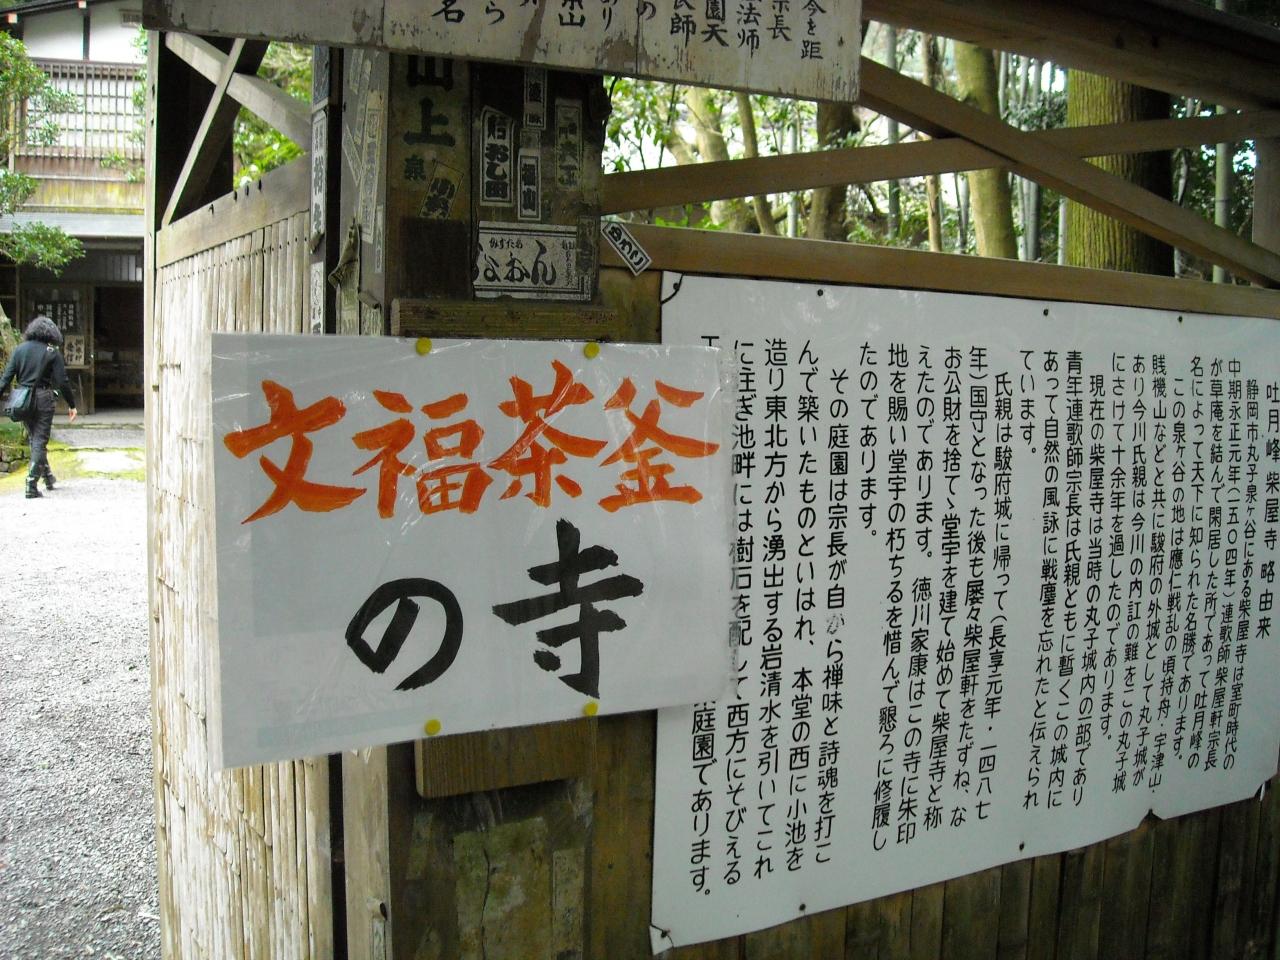 文福茶釜
の寺
吐月峰柴屋寺略由来
静岡市丸子泉ヶ谷にある柴屋寺は室町時代の
中期永正元年(一五〇四年)連歌師柴屋軒宗長
が草庵を結んで閑居した所であって吐月峰の
名によって天下に知られた名勝であります。
この泉ヶ谷の地は應仁戦乱の頃持舟、宇津山、
賎機山などと共に駿府の外城として丸子城が
あり今川氏親は今川の内訌の難をこの丸子城
にさけて十余年を過したのであります。
現在の柴屋寺は当時の丸子城内の一部であり
青年連歌師宗長は氏親とともに暫くこの城内に
あって自然の風詠に戦塵を忘れたと伝えられ
ています。
氏親は駿府城に帰って(長享元年・一四八七
年)国守となった後も屡々柴屋軒をたずね、な
お公財を捨てゝ堂宇を建て始めて柴屋寺と称
えたのであります。徳川家康はこの寺に朱印
地を賜い堂宇の朽ちるを惜んで懇ろに修履し
たのであります。
その庭園は宗長が自から禅味と詩魂を打こ
んで築いたものといはれ、本堂の西に小池を
造り東北方から湧出する岩清水を引いてこれ
に注ぎ池畔には樹石を配して西方にそびえる
庭園であります。
今を距
宗長
法師
園天
良師
の
あり
山
ら
名
山上
泉
なおん